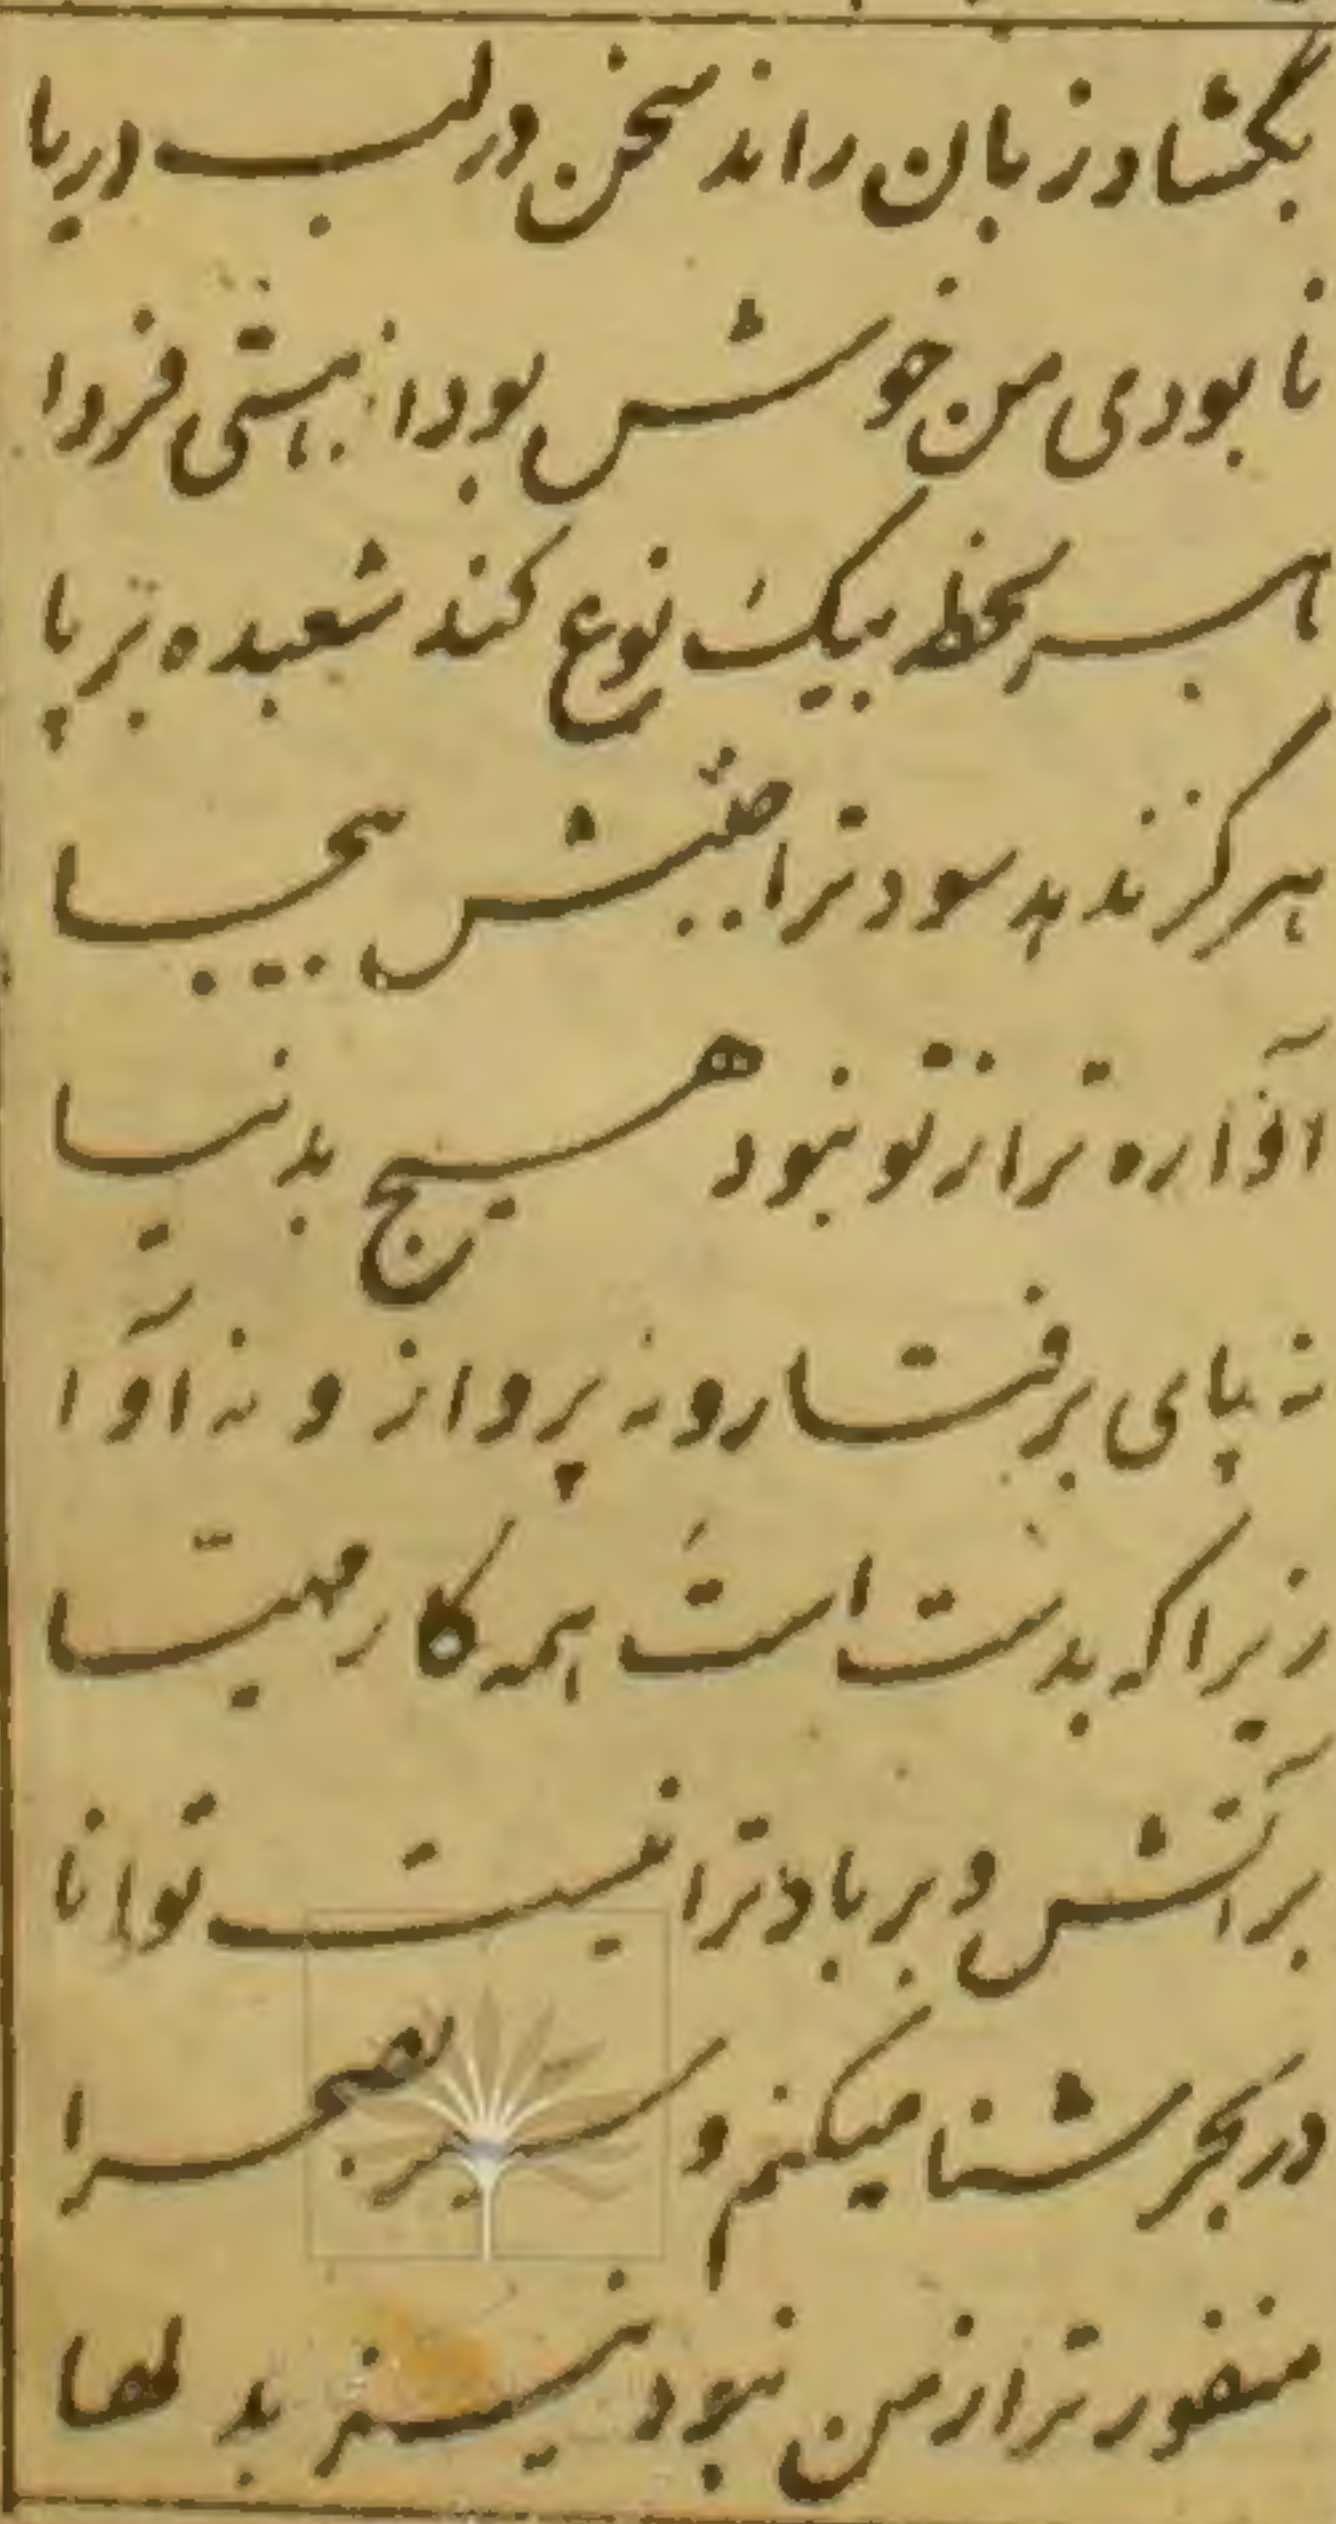 بگشاد زبان راند سخن در لب دریا
نابودی من خوش بود از هستی فردا
تا هر لحظه بیک نوع کند شعبده برپا
هرگز ندهد سود ترا بیجا
آواره تر از تو نبود هیچ بدنیا
نه پای برفتار و نه پرواز و نه آوا
زیرا که بدست است همه کار مهیا
بر آتش و بر باد ترا نیست توانا
در بحر شنا میکنم و سیر بصحرا
منفورتر از من نبود نیز بدلها